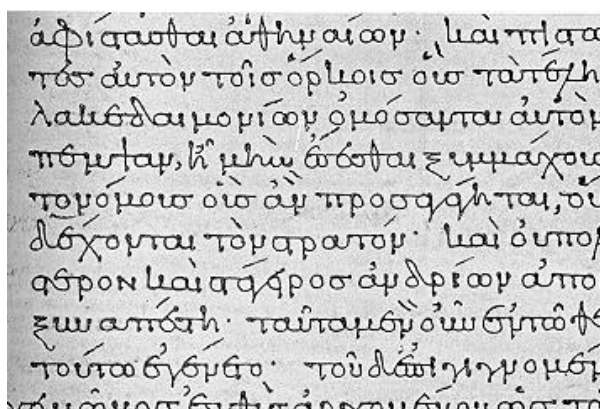 ἀφίστασθαι ἀθηναίων· καὶ πιστω
τες αὐτὸν τοῖς ὅρκοις οὓς τὰ τέλη
λακεδαιμονίων ὀμόσαντα αὐτὸν
πεμψαν, ἦ μὴν ἔσεσθαι ξυμμάχους
τονόμους οὓς ἂν προσαγάγηται, οὕ
δέχονται τὸν στρατόν· καὶ οὐ πολ
στερον καὶ στάγειρος ἀνδρίων ἀπο
ξυναπέστη· ταῦτα μὲν οὖν ἐν τῷ θέ
τούτω ἐγένετο· τοῦ δ ἐπιγιγνομέν